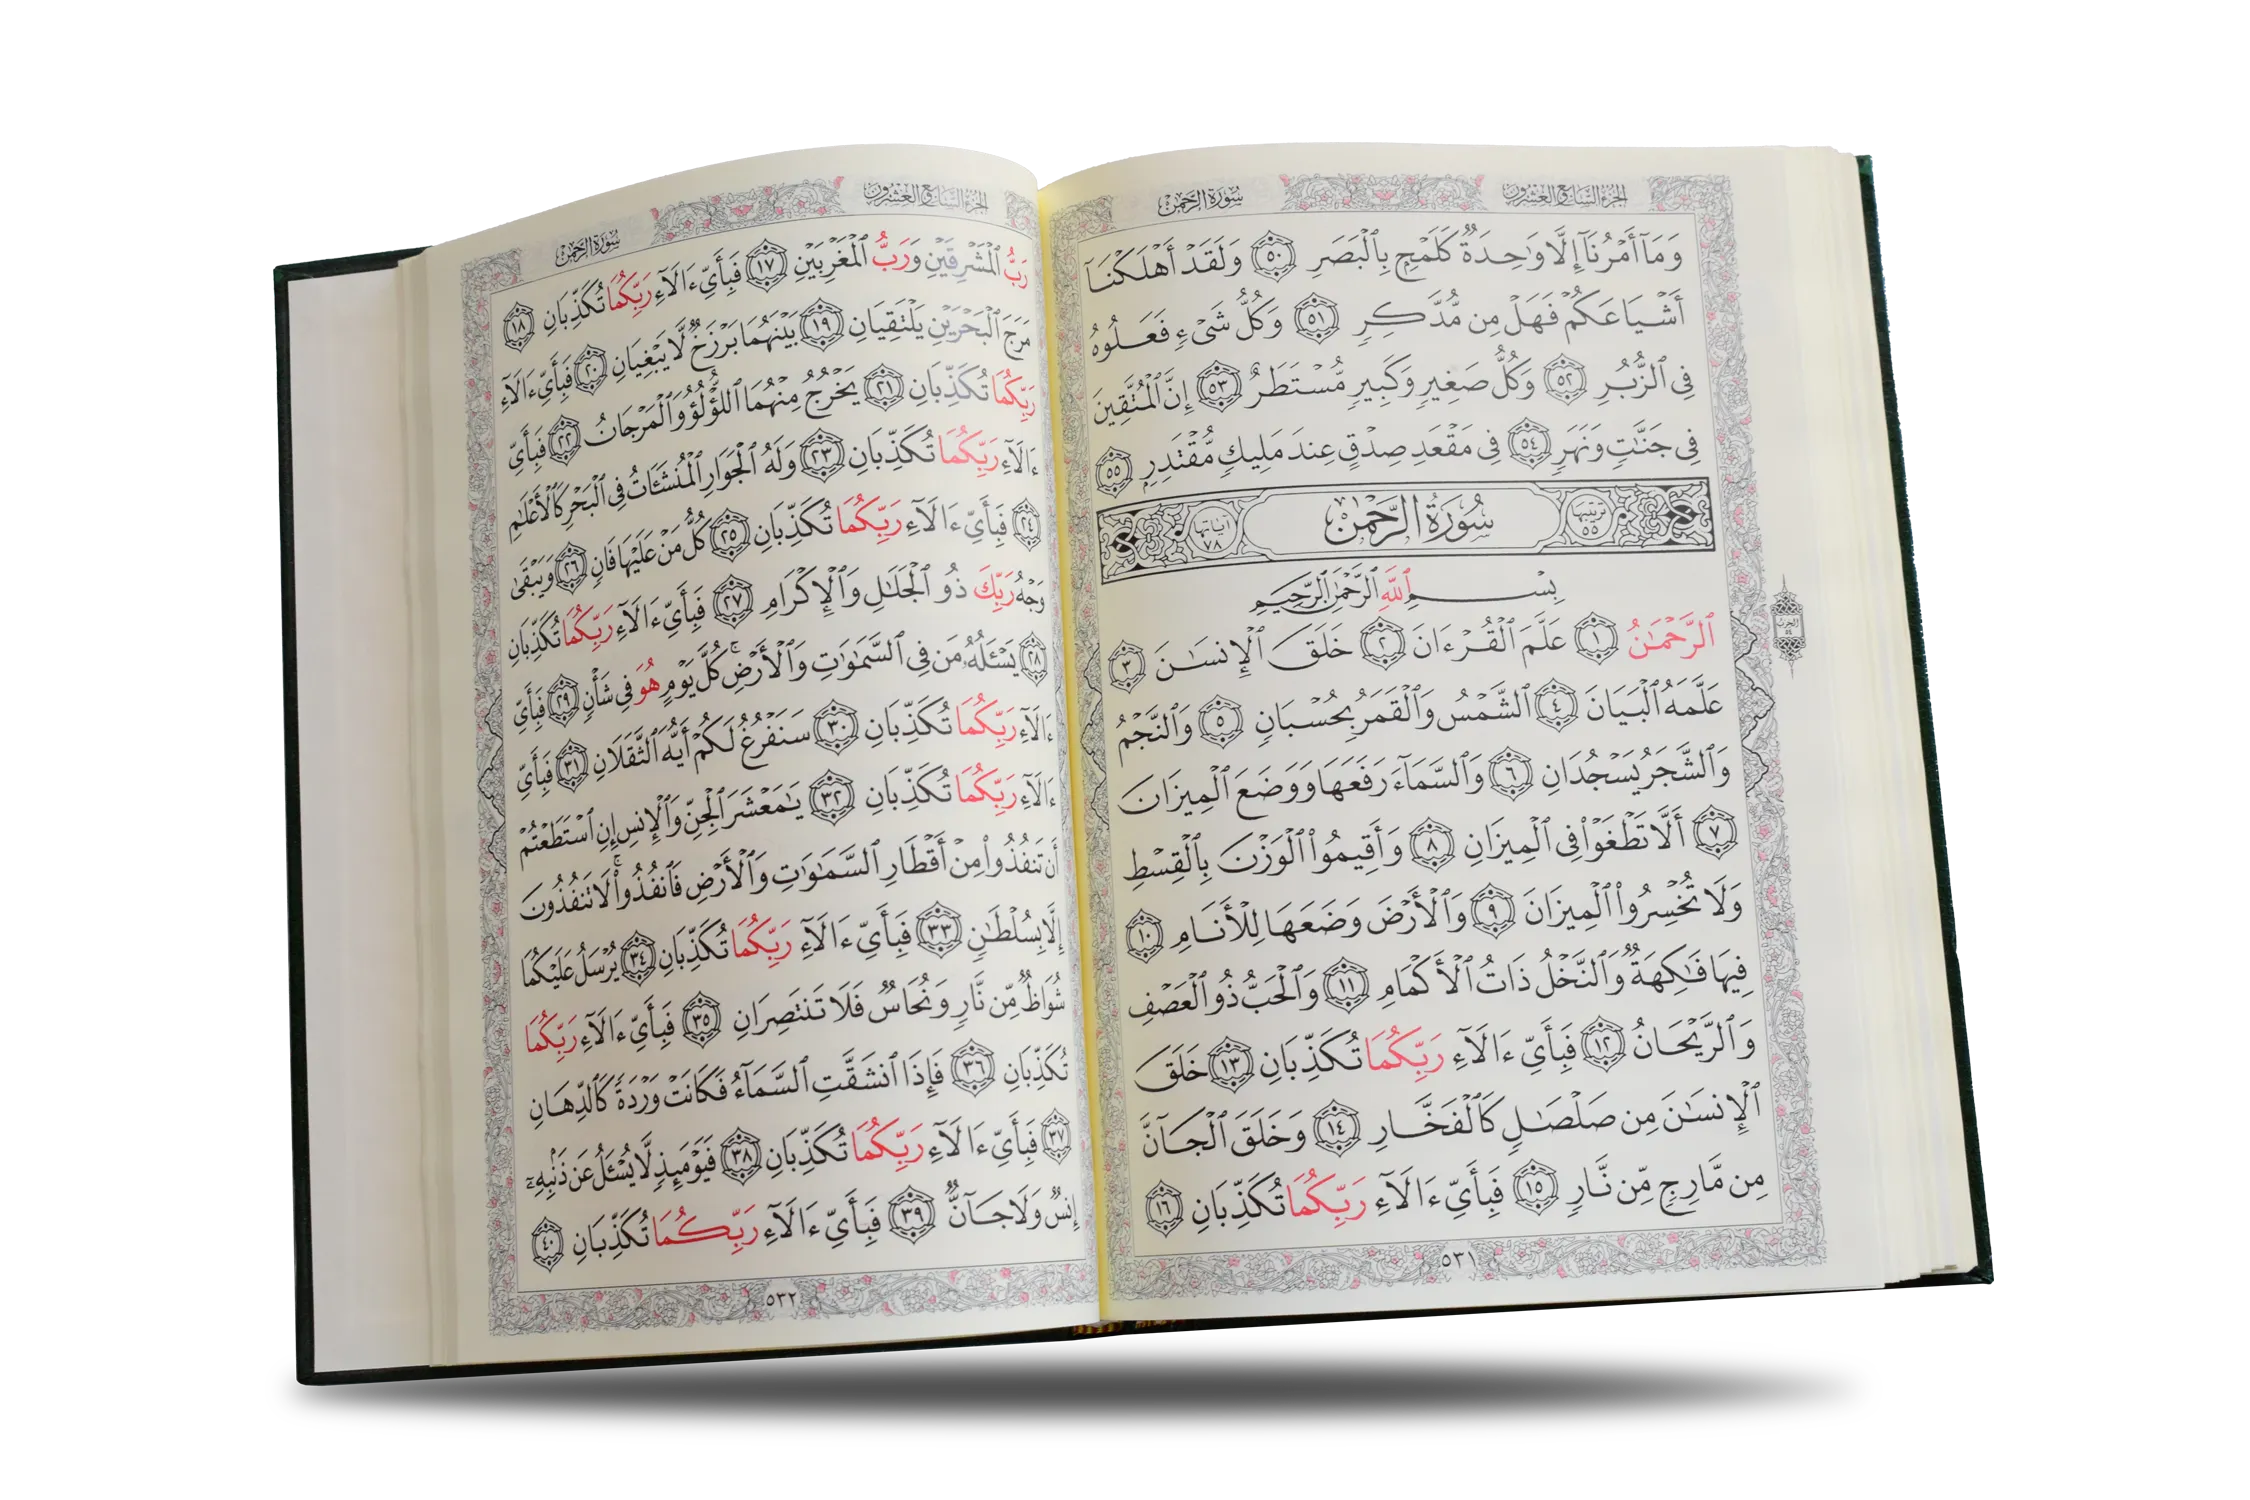 الجزء السابع والعشرون
سورة الرحمن
وَمَآ أَمْرُنَآ إِلَّا وَٰحِدَةٌ كَلَمْحٍۭ بِٱلْبَصَرِ ٥٠ وَلَقَدْ أَهْلَكْنَآ
أَشْيَاعَكُمْ فَهَلْ مِن مُّدَّكِرٍ ٥١ وَكُلُّ شَىْءٍ فَعَلُوهُ
فِى ٱلزُّبُرِ ٥٢ وَكُلُّ صَغِيرٍ وَكَبِيرٍ مُّسْتَطَرٌ ٥٣ إِنَّ ٱلْمُتَّقِينَ
فِى جَنَّٰتٍ وَنَهَرٍ ٥٤ فِى مَقْعَدِ صِدْقٍ عِندَ مَلِيكٍ مُّقْتَدِرٍۭ ٥٥
ترتيبها ٥٥ سُورَةُ الرَّحْمَٰن آياتها ٧٨
بِسْمِ ٱللَّهِ ٱلرَّحْمَٰنِ ٱلرَّحِيمِ
ٱلرَّحْمَٰنُ ١ عَلَّمَ ٱلْقُرْءَانَ ٢ خَلَقَ ٱلْإِنسَٰنَ ٣
الحزب ٥٤
عَلَّمَهُ ٱلْبَيَانَ ٤ ٱلشَّمْسُ وَٱلْقَمَرُ بِحُسْبَانٍ ٥ وَٱلنَّجْمُ
وَٱلشَّجَرُ يَسْجُدَانِ ٦ وَٱلسَّمَآءَ رَفَعَهَا وَوَضَعَ ٱلْمِيزَانَ
٧ أَلَّا تَطْغَوْا۟ فِى ٱلْمِيزَانِ ٨ وَأَقِيمُوا۟ ٱلْوَزْنَ بِٱلْقِسْطِ
وَلَا تُخْسِرُوا۟ ٱلْمِيزَانَ ٩ وَٱلْأَرْضَ وَضَعَهَا لِلْأَنَامِ ١٠
فِيهَا فَٰكِهَةٌ وَٱلنَّخْلُ ذَاتُ ٱلْأَكْمَامِ ١١ وَٱلْحَبُّ ذُو ٱلْعَصْفِ
وَٱلرَّيْحَانُ ١٢ فَبِأَىِّ ءَالَآءِ رَبِّكُمَا تُكَذِّبَانِ ١٣ خَلَقَ
ٱلْإِنسَٰنَ مِن صَلْصَٰلٍ كَٱلْفَخَّارِ ١٤ وَخَلَقَ ٱلْجَآنَّ
مِن مَّارِجٍ مِّن نَّارٍ ١٥ فَبِأَىِّ ءَالَآءِ رَبِّكُمَا تُكَذِّبَانِ ١٦
٥٣١
الجزء السابع والعشرون
سورة الرحمن
رَبُّ ٱلْمَشْرِقَيْنِ وَرَبُّ ٱلْمَغْرِبَيْنِ ١٧ فَبِأَىِّ ءَالَآءِ رَبِّكُمَا تُكَذِّبَانِ ١٨
مَرَجَ ٱلْبَحْرَيْنِ يَلْتَقِيَانِ ١٩ بَيْنَهُمَا بَرْزَخٌ لَّا يَبْغِيَانِ ٢٠ فَبِأَىِّ ءَالَآءِ
رَبِّكُمَا تُكَذِّبَانِ ٢١ يَخْرُجُ مِنْهُمَا ٱللُّؤْلُؤُ وَٱلْمَرْجَانُ ٢٢ فَبِأَىِّ
ءَالَآءِ رَبِّكُمَا تُكَذِّبَانِ ٢٣ وَلَهُ ٱلْجَوَارِ ٱلْمُنشَـَٔاتُ فِى ٱلْبَحْرِ كَٱلْأَعْلَٰمِ
٢٤ فَبِأَىِّ ءَالَآءِ رَبِّكُمَا تُكَذِّبَانِ ٢٥ كُلُّ مَنْ عَلَيْهَا فَانٍ ٢٦ وَيَبْقَىٰ
وَجْهُ رَبِّكَ ذُو ٱلْجَلَٰلِ وَٱلْإِكْرَامِ ٢٧ فَبِأَىِّ ءَالَآءِ رَبِّكُمَا تُكَذِّبَانِ
٢٨ يَسْـَٔلُهُۥ مَن فِى ٱلسَّمَٰوَٰتِ وَٱلْأَرْضِ ۚ كُلَّ يَوْمٍ هُوَ فِى شَأْنٍ ٢٩ فَبِأَىِّ
ءَالَآءِ رَبِّكُمَا تُكَذِّبَانِ ٣٠ سَنَفْرُغُ لَكُمْ أَيُّهَ ٱلثَّقَلَانِ ٣١ فَبِأَىِّ
ءَالَآءِ رَبِّكُمَا تُكَذِّبَانِ ٣٢ يَٰمَعْشَرَ ٱلْجِنِّ وَٱلْإِنسِ إِنِ ٱسْتَطَعْتُمْ
أَن تَنفُذُوا۟ مِنْ أَقْطَارِ ٱلسَّمَٰوَٰتِ وَٱلْأَرْضِ فَٱنفُذُوا۟ ۚ لَا تَنفُذُونَ
إِلَّا بِسُلْطَٰنٍ ٣٣ فَبِأَىِّ ءَالَآءِ رَبِّكُمَا تُكَذِّبَانِ ٣٤ يُرْسَلُ عَلَيْكُمَا
شُوَاظٌ مِّن نَّارٍ وَنُحَاسٌ فَلَا تَنتَصِرَانِ ٣٥ فَبِأَىِّ ءَالَآءِ رَبِّكُمَا
تُكَذِّبَانِ ٣٦ فَإِذَا ٱنشَقَّتِ ٱلسَّمَآءُ فَكَانَتْ وَرْدَةً كَٱلدِّهَانِ
٣٧ فَبِأَىِّ ءَالَآءِ رَبِّكُمَا تُكَذِّبَانِ ٣٨ فَيَوْمَئِذٍ لَّا يُسْـَٔلُ عَن ذَنۢبِهِۦٓ
إِنسٌ وَلَا جَآنٌّ ٣٩ فَبِأَىِّ ءَالَآءِ رَبِّكُمَا تُكَذِّبَانِ ٤٠
٥٣٢